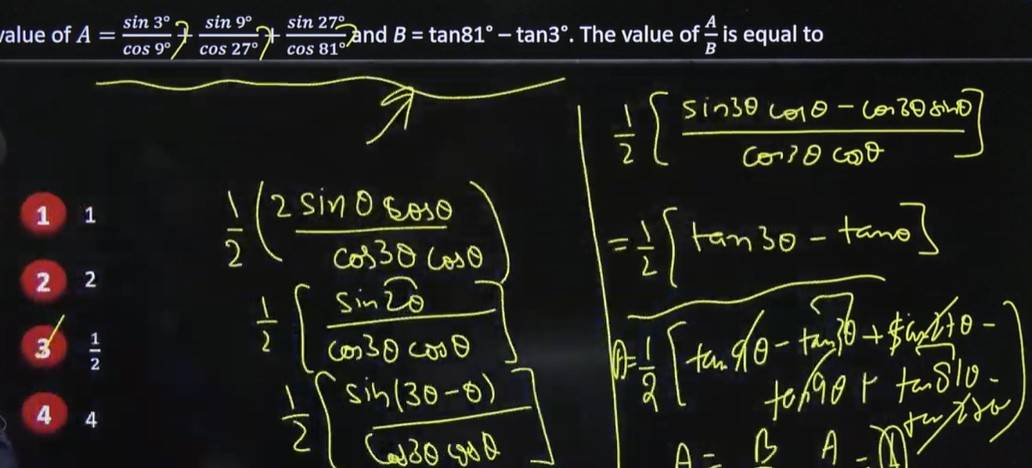 value of A = sin 3°/cos 9° + sin 9°/cos 27° + sin 27°/cos 81° and B = tan81° − tan3°. The value of A/B is equal to
1 1
2 2
3 1/2
4 4
1/2 ( 2 sin θ cosθ / cos3θ cosθ )
1/2 [ sin2θ / cos3θ cosθ ]
1/2 [ sin(3θ-θ) / cos3θ cosθ ]
1/2 [ sin3θ cosθ − cos3θ sinθ / cos3θ cosθ ]
= 1/2 [ tan3θ − tanθ ]
A = 1/2 [ tan9θ − tan3θ +
tan9θ + tan81θ -
A = B A =